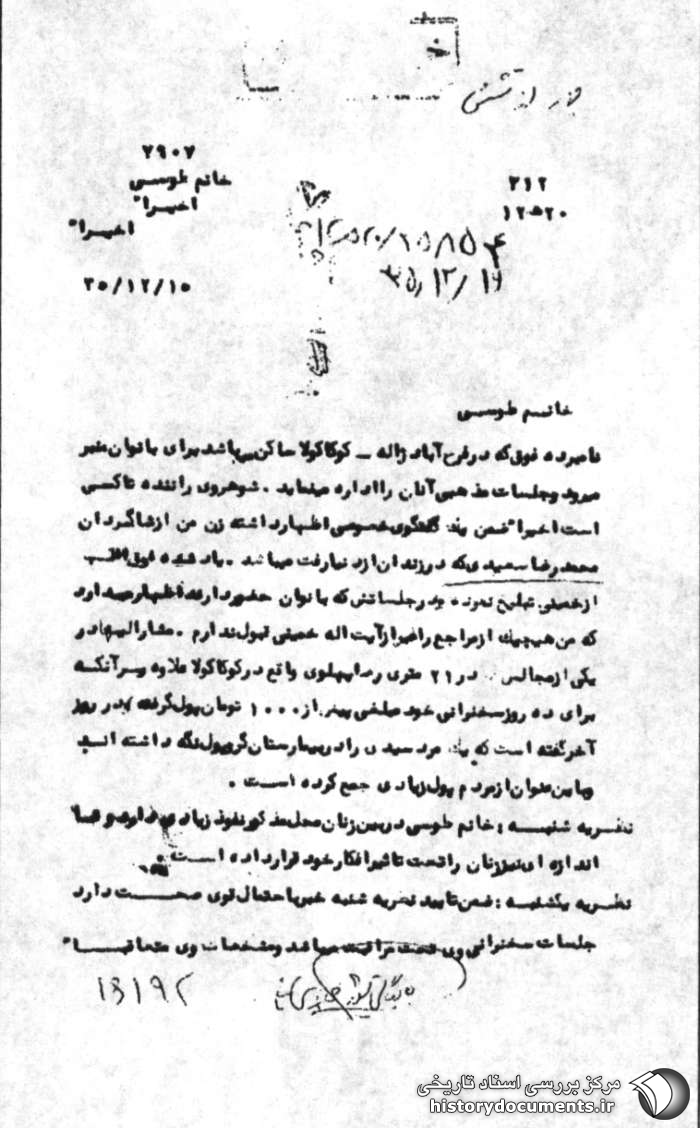 ۲۹۰۷
خانم طوسی
۲۱۲
اخیرا"
۱۲۵۲۰
اخیرا"
۳۵/۱۲/۱۰
۳۵/۱۲/۱۶
خانم طوسی
نامبرده فوق که در فرح آباد ژاله - کوکاکولا ساکن میباشد برای بانوان منبر
میرود و جلسات مذهبی آنان را اداره مینماید . شوهر وی راننده تاکسی
است اخیرا" ضمن یک گفتگوی خصوصی اظهار داشته زن من از شاگردان
محمد رضا سعیدی که در زندان از دنیا رفت میباشد . یاد شده فوق اغلب
از خمینی تبلیغ نموده و در جلساتش که بانوان حضور دارند اظهار میدارد
که من هیچیک از مراجع را غیر از آیت اله خمینی قبول ندارم . مشارالیها در
یکی از مجالس در ۲۱ متری رضا پهلوی واقع در کوکاکولا علاوه بر آنکه
برای ده روز سخنرانی خود مبلغی بیش از ۱۰۰۰ تومان پول گرفته در روز
آخر گفته است که یک مرد سیدی را در بیمارستان گرو پول نگه داشته اند
و باین عنوان از مردم پول زیادی جمع کرده است .
نظریه شنبه : خانم طوسی در بین زنان محل مذکور نفوذ زیادی دارد و تا
اندازه ای نیز زنان را تحت تاثیر افکار خود قرار داده است .
نظریه یکشنبه : ضمن تایید نظریه شنبه خبر باحتمال قوی صحت دارد
جلسات سخنرانی وی تحت مراقبت میباشد و مشخصات وی متعاقبا"
مرکز بررسی اسناد تاریخی
historydocuments.ir